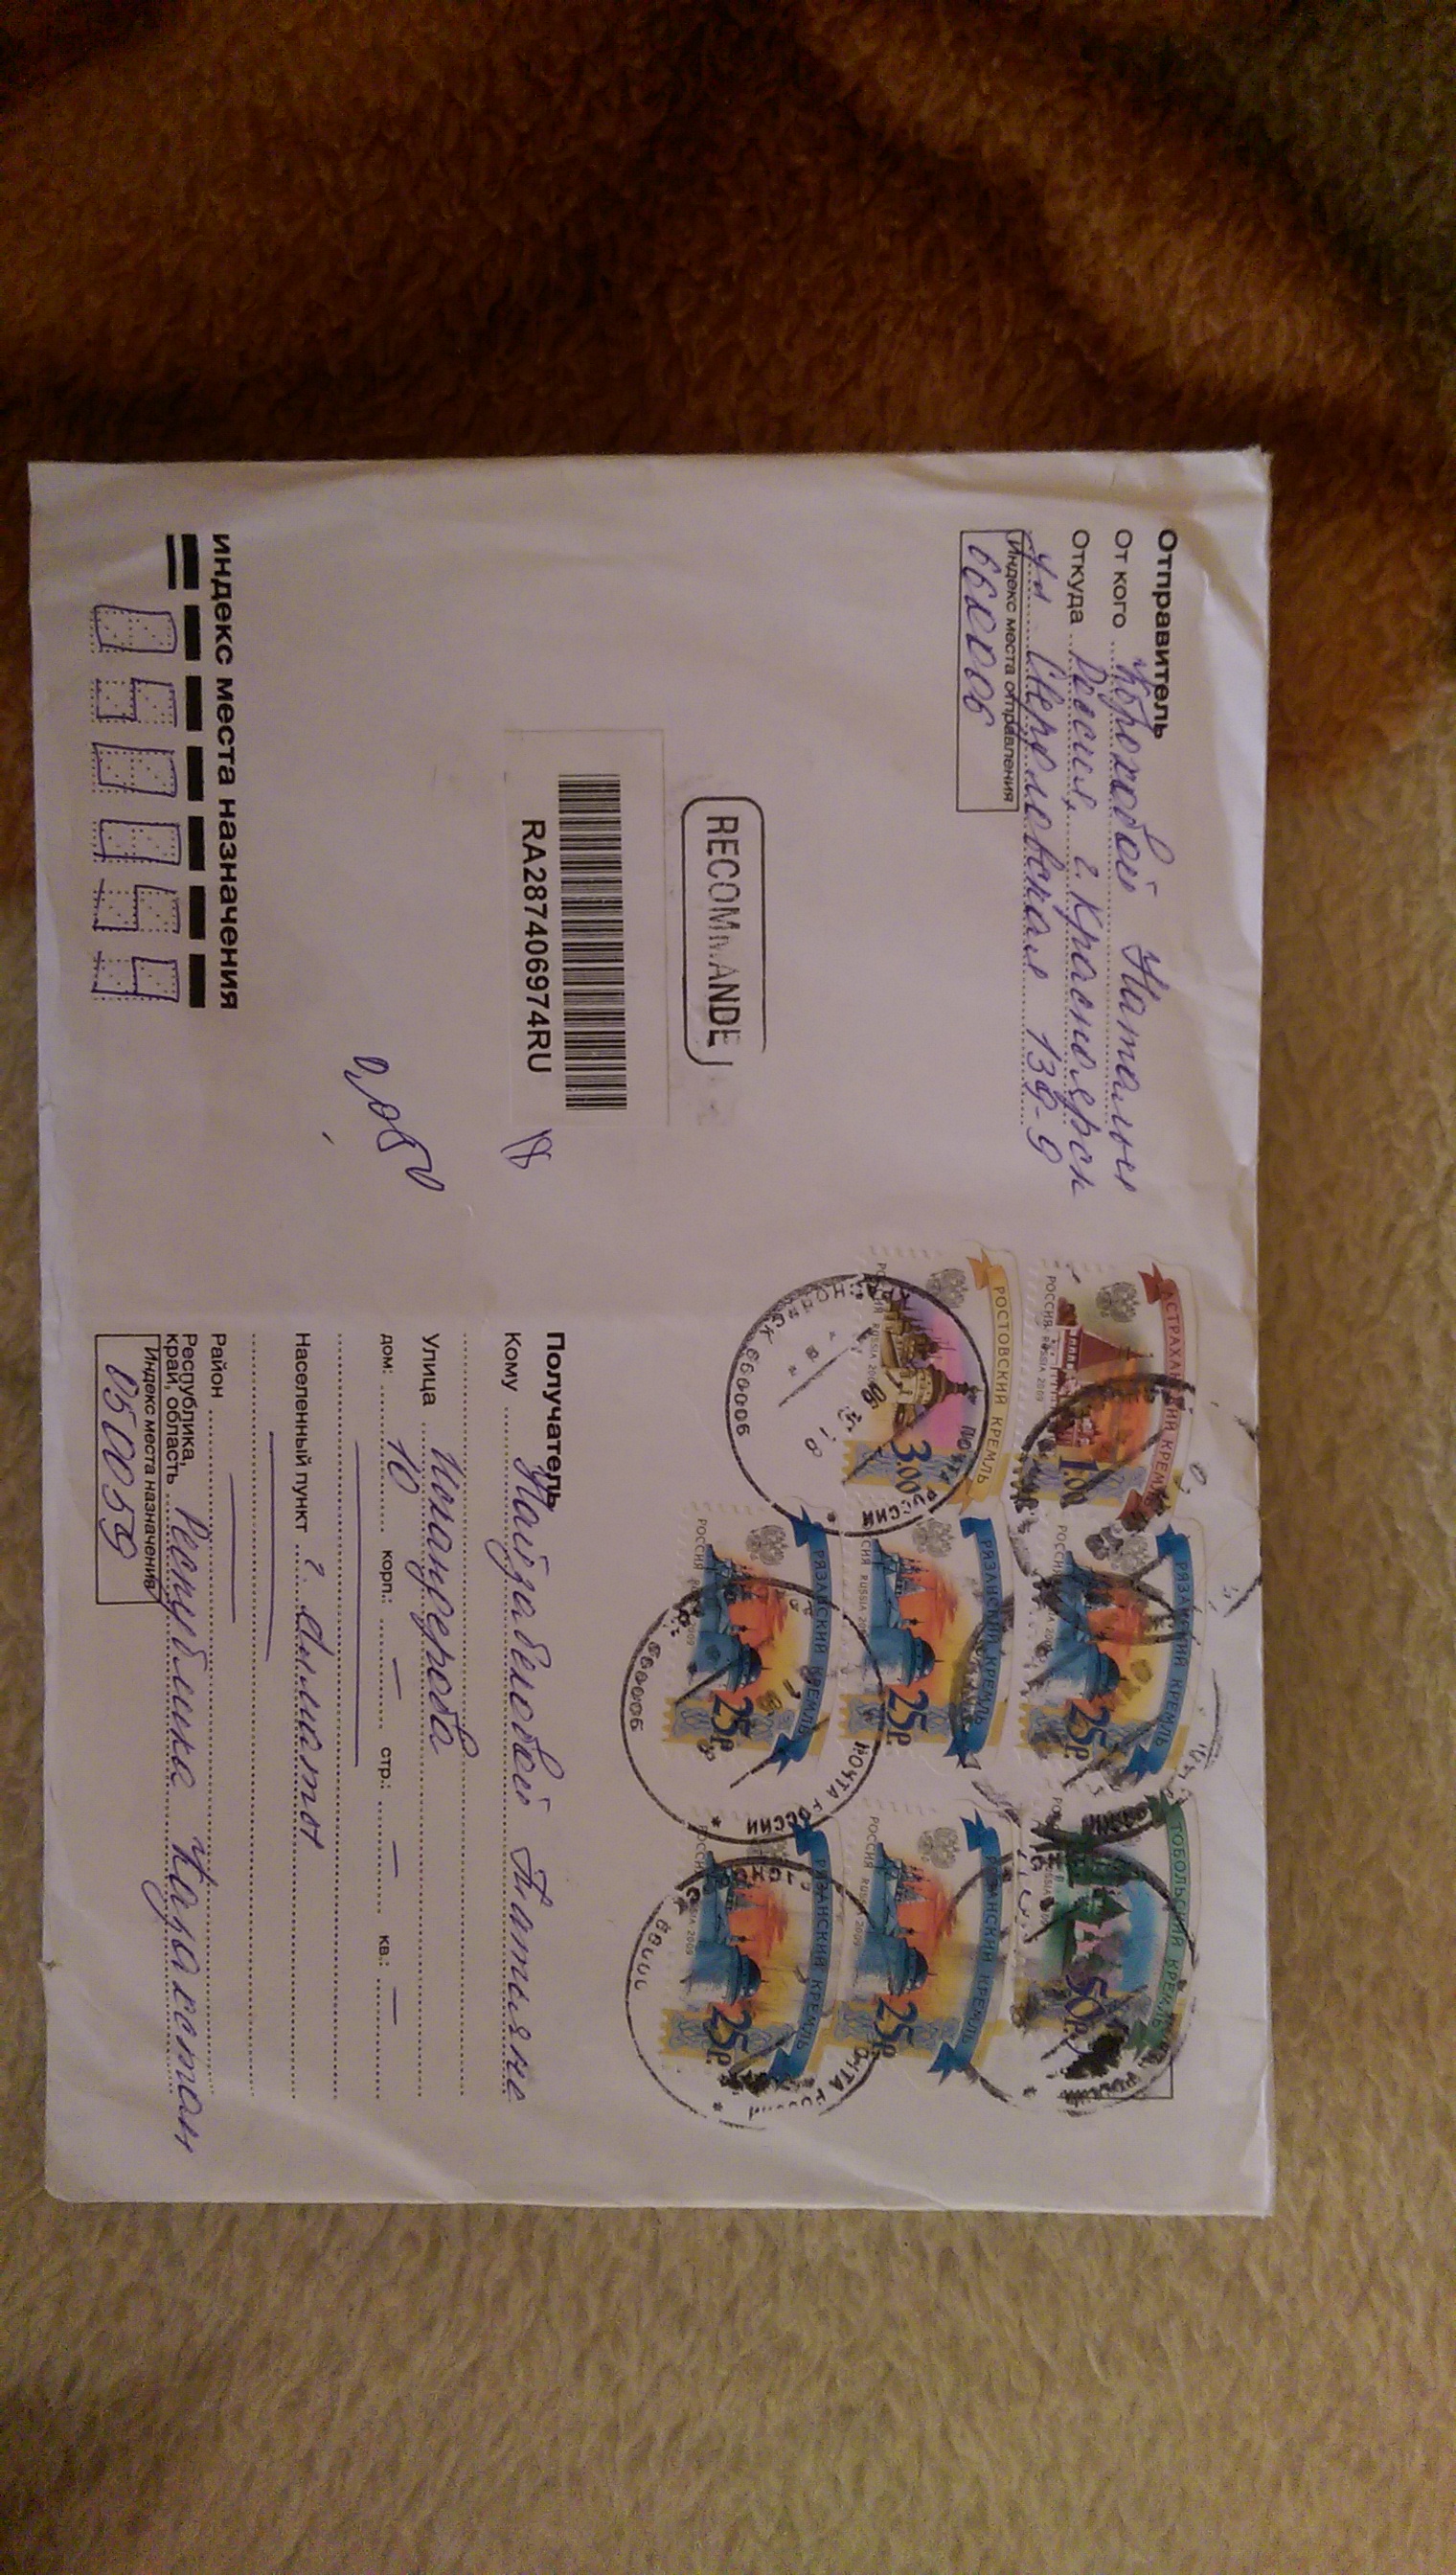 Отправитель
От кого Короховой Натальи
Откуда Россия, г. Красноярск
ул. Свердловская 139-9
Индекс места отправления
660006
АСТРАХАНСКИЙ КРЕМЛЬ
РОССИЯ RUSSIA 2009
1.00
РЯЗАНСКИЙ КРЕМЛЬ
25р
ТОБОЛЬСКИЙ КРЕМЛЬ
50р
РОСТОВСКИЙ КРЕМЛЬ
РОССИЯ RUSSIA 2009
3.00
РЯЗАНСКИЙ КРЕМЛЬ
РОССИЯ RUSSIA 2009
25р
РЯЗАНСКИЙ КРЕМЛЬ
РОССИЯ RUSSIA 2009
25р
РЯЗАНСКИЙ КРЕМЛЬ
РОССИЯ 2009
25р
РЯЗАНСКИЙ КРЕМЛЬ
РОССИЯ 2009
25р
ПОЧТА РОССИИ
660006
ПОЧТА РОССИИ
660006
ПОЧТА РОССИИ
RECOMMANDE
RA287406974RU
0,080
Получатель
Кому Татьяне
Улица
дом: 10 корп.: — стр.: — кв.: —
Населенный пункт г. Алматы
Район
Республика, край, область Республика Казахстан
Индекс места назначения
050059
индекс места назначения
050059